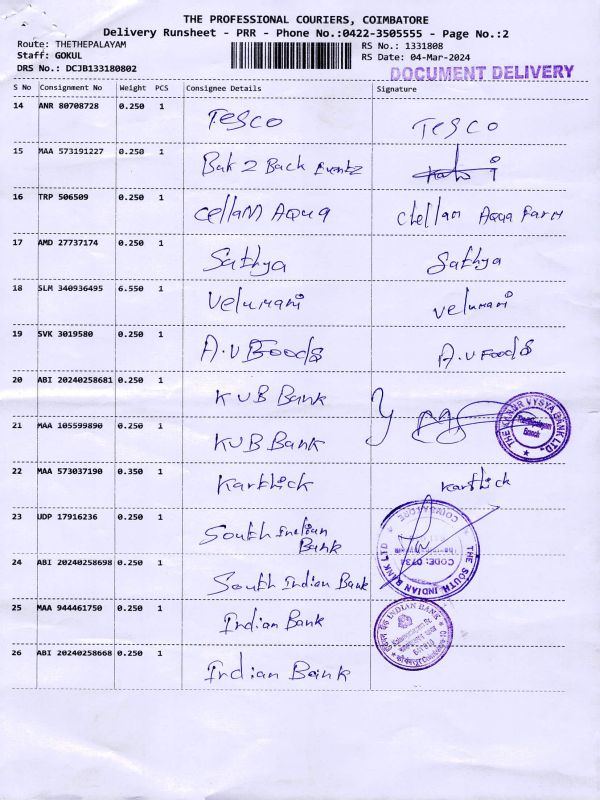 THE PROFESSIONAL COURIERS, COIMBATORE
Delivery Runsheet - PRR - Phone No.:0422-3505555 - Page No.:2
Route: THETHEPALAYAM
Staff: GOKUL
DRS No.: DCJB133180802
RS No.: 1331808
RS Date: 04-Mar-2024
DOCUMENT DELIVERY
S No Consignment No Weight PCS Consignee Details Signature
14 ANR 80708728 0.250 1 Tesco Tesco
15 MAA 573191227 0.250 1 Bak 2 Back Eventz
16 TRP 506509 0.250 1 cellam Aqua chellam Aqua Farm
17 AMD 27737174 0.250 1 Sathya Sathya
18 SLM 340936495 6.550 1 Velumani Velumani
19 SVK 3019580 0.250 1 A.V Foods A.V Foods
20 ABI 20240258681 0.250 1 KVB Bank
THE KARUR VYSYA BANK LTD.
Branch
21 MAA 105599890 0.250 1 KVB Bank
22 MAA 573037190 0.350 1 Karthick Karthick
23 UDP 17916236 0.250 1 South Indian Bank
THE SOUTH INDIAN BANK LTD
COIMBATORE
24 ABI 20240258698 0.250 1 South Indian Bank
25 MAA 944461750 0.250 1 Indian Bank
INDIAN BANK
26 ABI 20240258668 0.250 1 Indian Bank